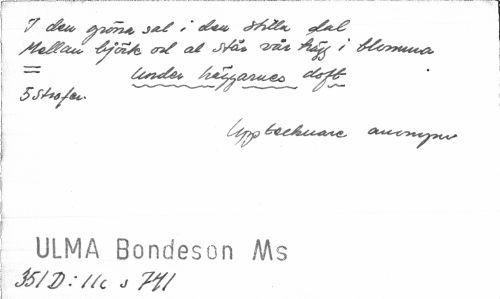 I den gröna sal i den stilla dal
Mellan björk od al står vår hägg i blomma
= under häggarnes doft
5 strofer.
Upptecknare anonym
ULMA Bondeson Ms
351 D: 11c s 741